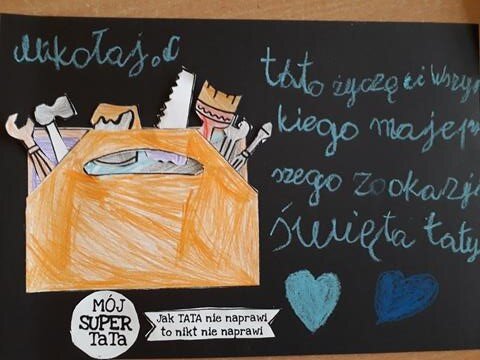 Mikołaj.C
tato życzę ci wszys
kiego najlep
szego z okazji
święta taty
MÓJ
SUPER
TaTa
Jak TATA nie naprawi
to nikt nie naprawi